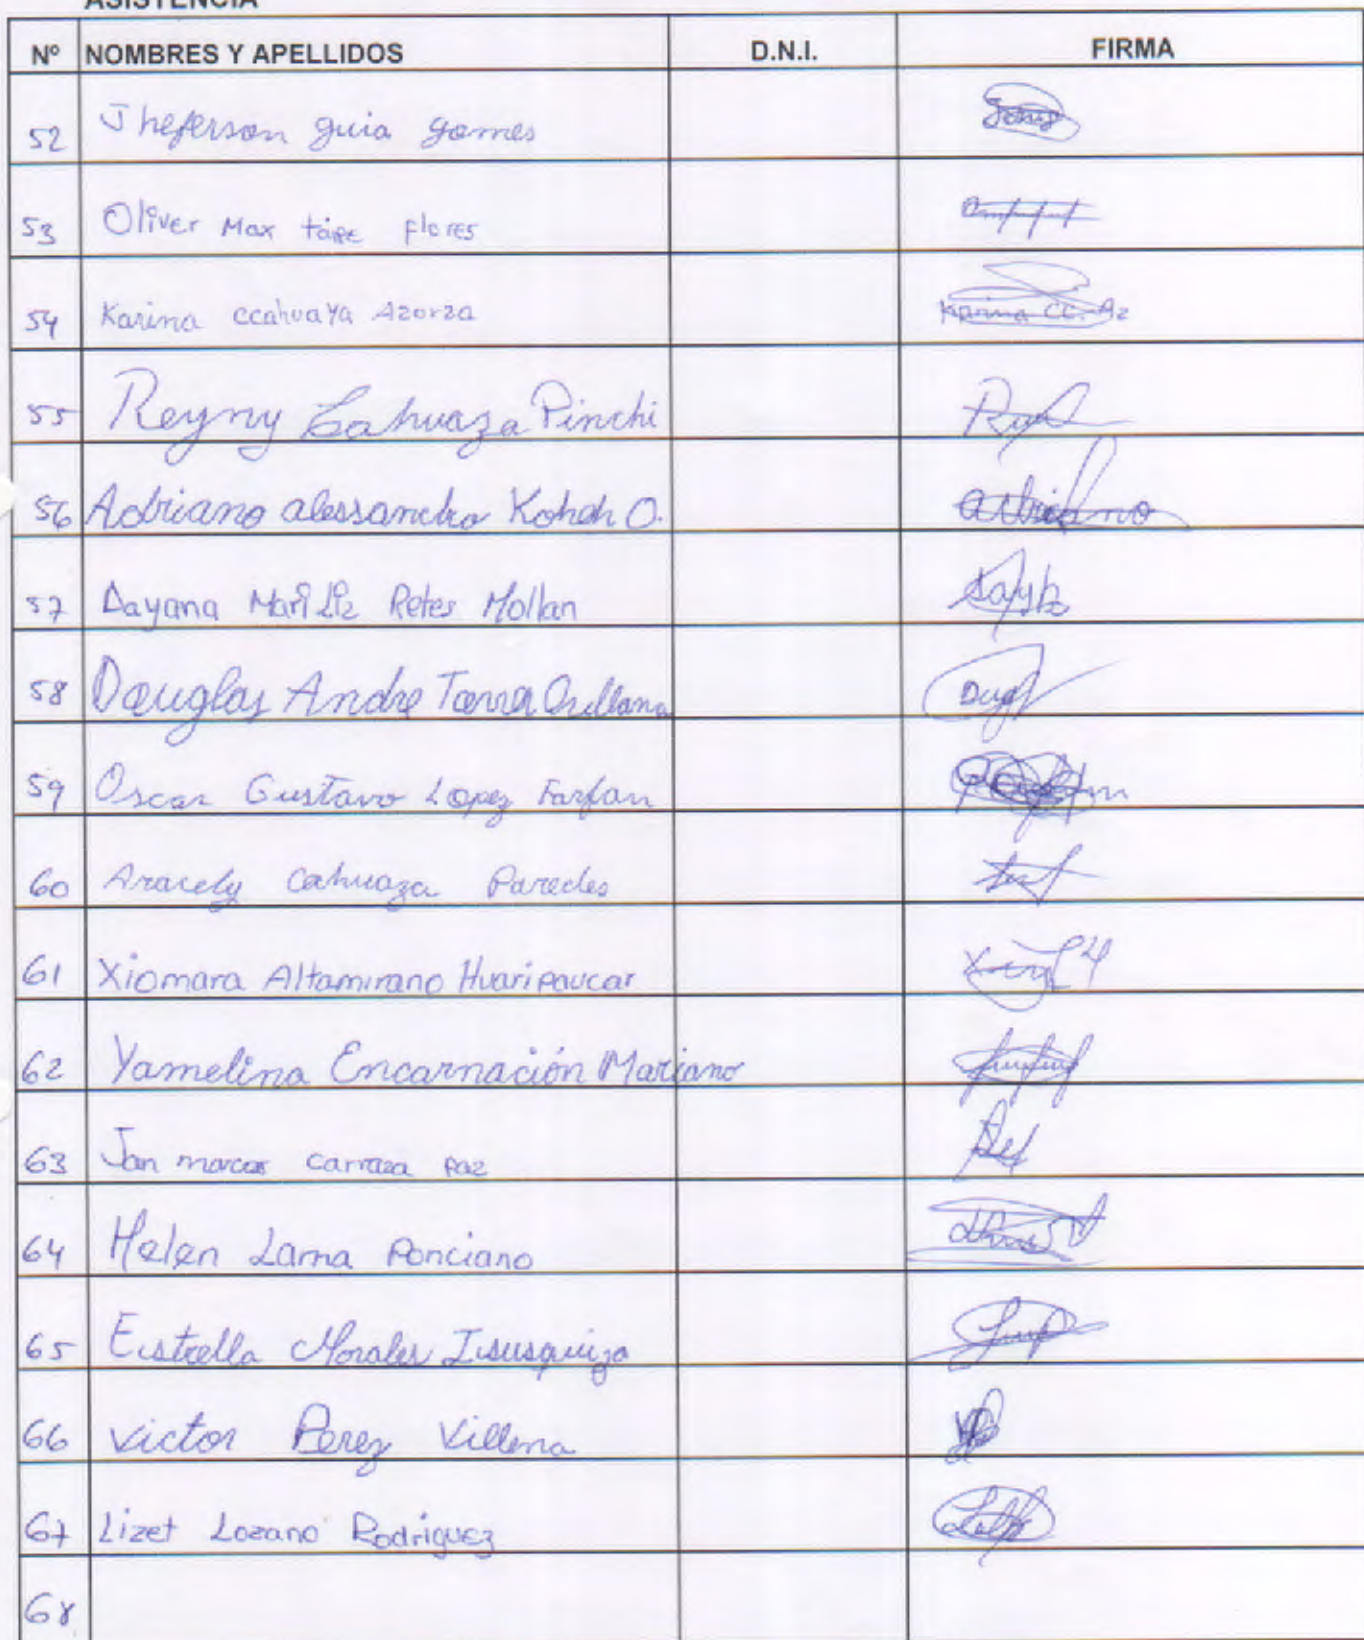 ASISTENCIA
Nº NOMBRES Y APELLIDOS D.N.I. FIRMA
52 Jheferson guia gomes
53 Oliver Max taipe flores
54 Karina ccahuaya Azorza Karina CC. Az
55 Reyny Cahuaza Pinchi
56 Adriano alessandro Kohch O. adriano
57 Dayana Mariliz Retes Mollan
58 Douglas Andre Orellana
59 Oscar Gustavo Lopez Farfan
60 Aracely Cahuaza Paredes
61 Xiomara Altamirano Huaripaucar
62 Yamelina Encarnación Mariano
63 Jan marcos carraza paz
64 Helen Lama Ponciano
65 Estrella Morales Isusquiza
66 Victor Perez Villena
67 Lizet Lozano Rodriguez
68